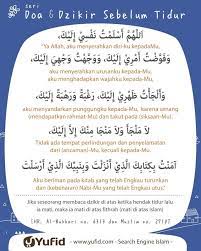 Seri
Doa & Dzikir Sebelum Tidur
اَللَّهُمَّ أَسْلَمْتُ نَفْسِيْ إِلَيْكَ،
"Ya Allah, aku menyerahkan diriku kepadaMu,
وَفَوَّضْتُ أَمْرِيْ إِلَيْكَ، وَوَجَّهْتُ وَجْهِيَ إِلَيْكَ،
aku menyerahkan urusanku kepadaMu,
aku menghadapkan wajahku kepadaMu,
وَأَلْجَأْتُ ظَهْرِيْ إِلَيْكَ، رَغْبَةً وَرَهْبَةً إِلَيْكَ،
aku menyandarkan punggungku kepadaMu, karena senang
(mendapatkan rahmatMu) dan takut pada (siksaanMu).
لاَ مَلْجَأَ وَلاَ مَنْجَا مِنْكَ إِلاَّ إِلَيْكَ،
Tidak ada tempat perlindungan dan penyelamatan
dari (ancaman)Mu, kecuali kepadaMu.
آمَنْتُ بِكِتَابِكَ الَّذِيْ أَنْزَلْتَ وَبِنَبِيِّكَ الَّذِيْ أَرْسَلْتَ
Aku beriman pada kitab yang telah Engkau turunkan
dan (kebenaran) NabiMu yang telah Engkau utus."
Jika seseorang membaca dzikir di atas ketika hendak tidur lalu
ia mati, maka ia mati di atas fithrah (mati di atas Islam)
(HR. Al-Bukhari no. 6313 dan Muslim no. 2710)
YUFID
www.yufid.com - Search Engine Islam -